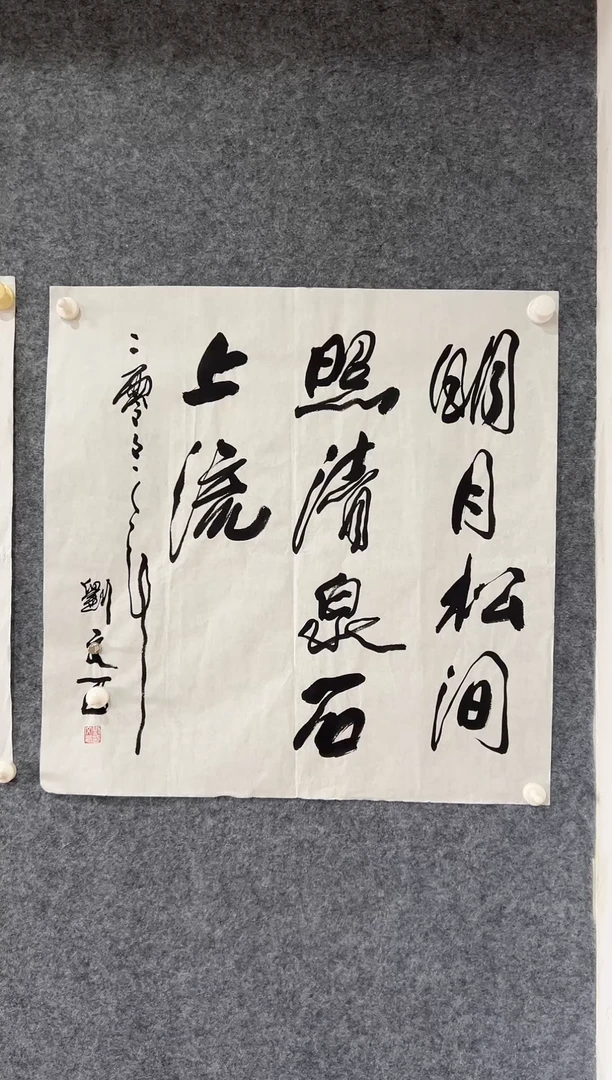 明月松间
照清泉石
上流
二零
劉文西